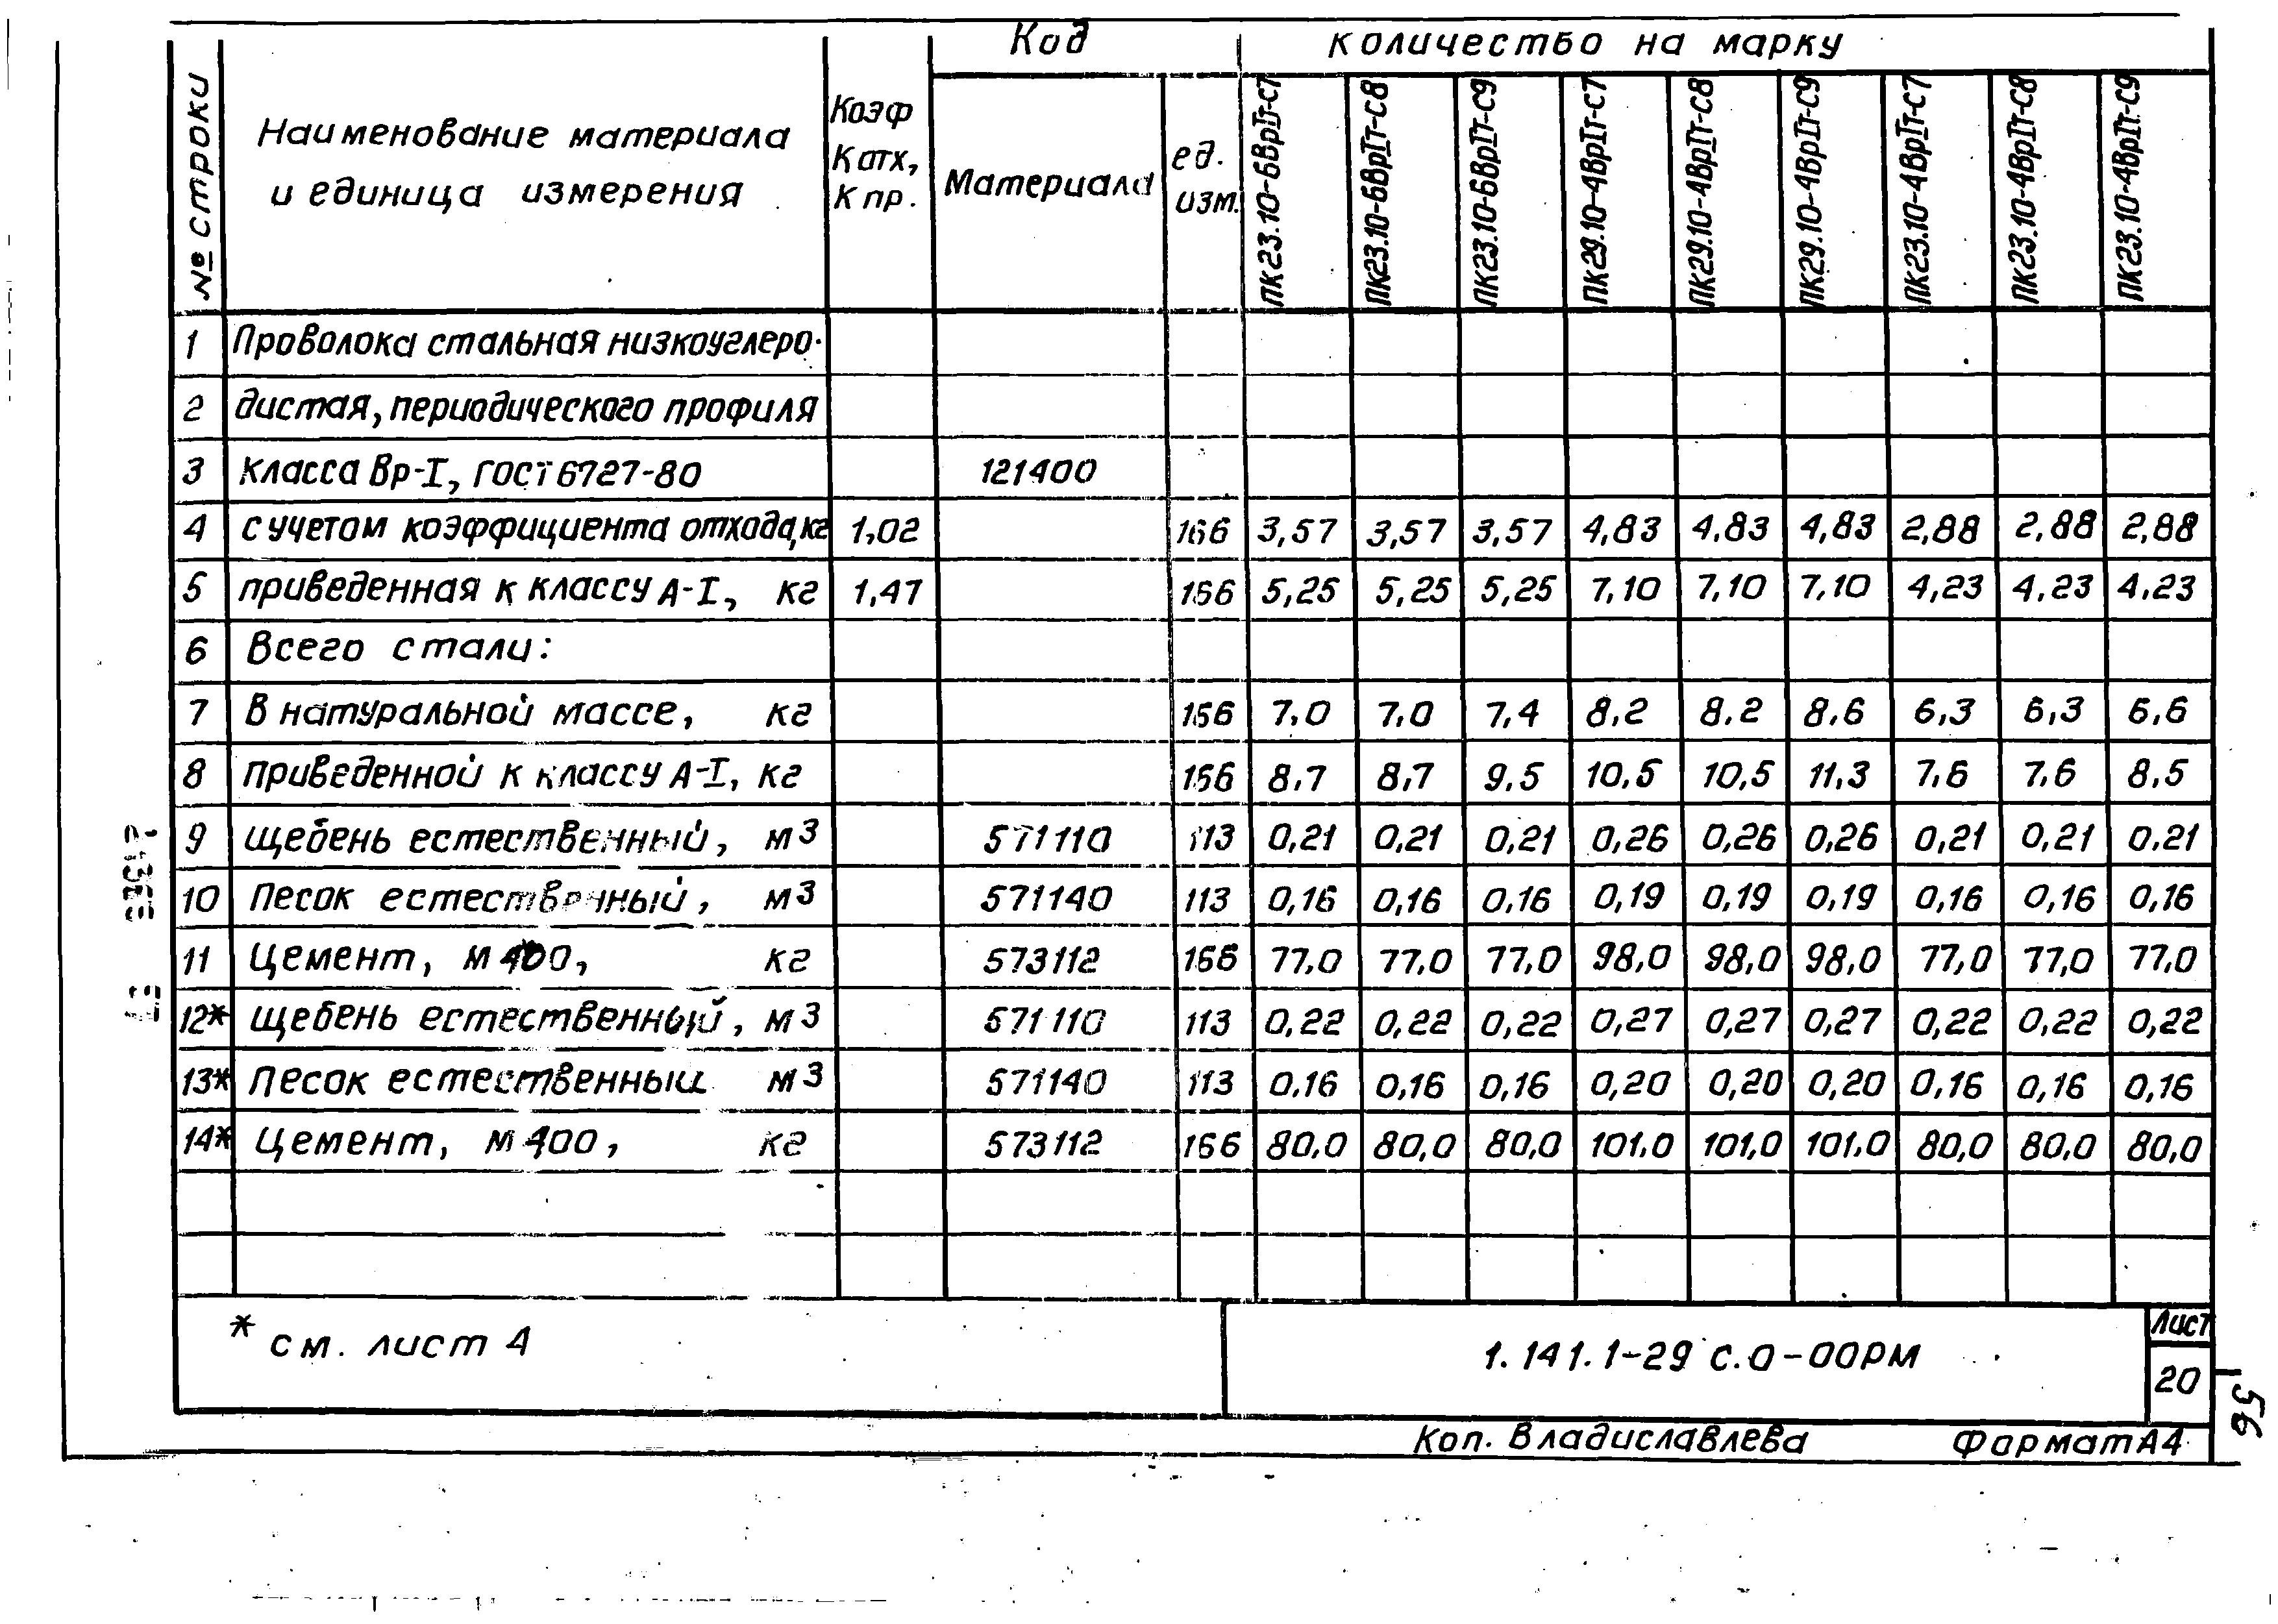 № строки
Наименование материала
и единица измерения
Коэф
К отх,
К пр.
Код
Материала
ед.
изм.
количество на марку
ПК23.10-6ВрIт-с7
ПК23.10-6ВрIт-с8
ПК23.10-6ВрIт-с9
ПК29.10-4ВрIт-с7
ПК29.10-4ВрIт-с8
ПК29.10-4ВрIт-с9
ПК23.10-4ВрIт-с7
ПК23.10-4ВрIт-с8
ПК23.10-4ВрIт-с9
1 Проволока стальная низкоуглеро-
2 дистая, периодического профиля
3 класса Вр-I, ГОСТ 6727-80 121400
4 с учетом коэффициента отхода, кг 1,02 166 3,57 3,57 3,57 4,83 4,83 4,83 2,88 2,88 2,88
5 приведенная к классу А-I, кг 1,47 166 5,25 5,25 5,25 7,10 7,10 7,10 4,23 4,23 4,23
6 Всего стали:
7 в натуральной массе, кг 166 7,0 7,0 7,4 8,2 8,2 8,6 6,3 6,3 6,6
8 приведенной к классу А-I, кг 166 8,7 8,7 9,5 10,5 10,5 11,3 7,6 7,6 8,5
9 щебень естественный, м3 571110 113 0,21 0,21 0,21 0,26 0,26 0,26 0,21 0,21 0,21
10 песок естественный, м3 571140 113 0,16 0,16 0,16 0,19 0,19 0,19 0,16 0,16 0,16
11 Цемент, М400, кг 573112 166 77,0 77,0 77,0 98,0 98,0 98,0 77,0 77,0 77,0
12* щебень естественный, м3 571110 113 0,22 0,22 0,22 0,27 0,27 0,27 0,22 0,22 0,22
13* песок естественный м3 571140 113 0,16 0,16 0,16 0,20 0,20 0,20 0,16 0,16 0,16
14* Цемент, М400, кг 573112 166 80,0 80,0 80,0 101,0 101,0 101,0 80,0 80,0 80,0
* см. лист 4
1.141.1-29 с.0-00РМ
Лист
20
56
Коп. Владиславлева Формат А4